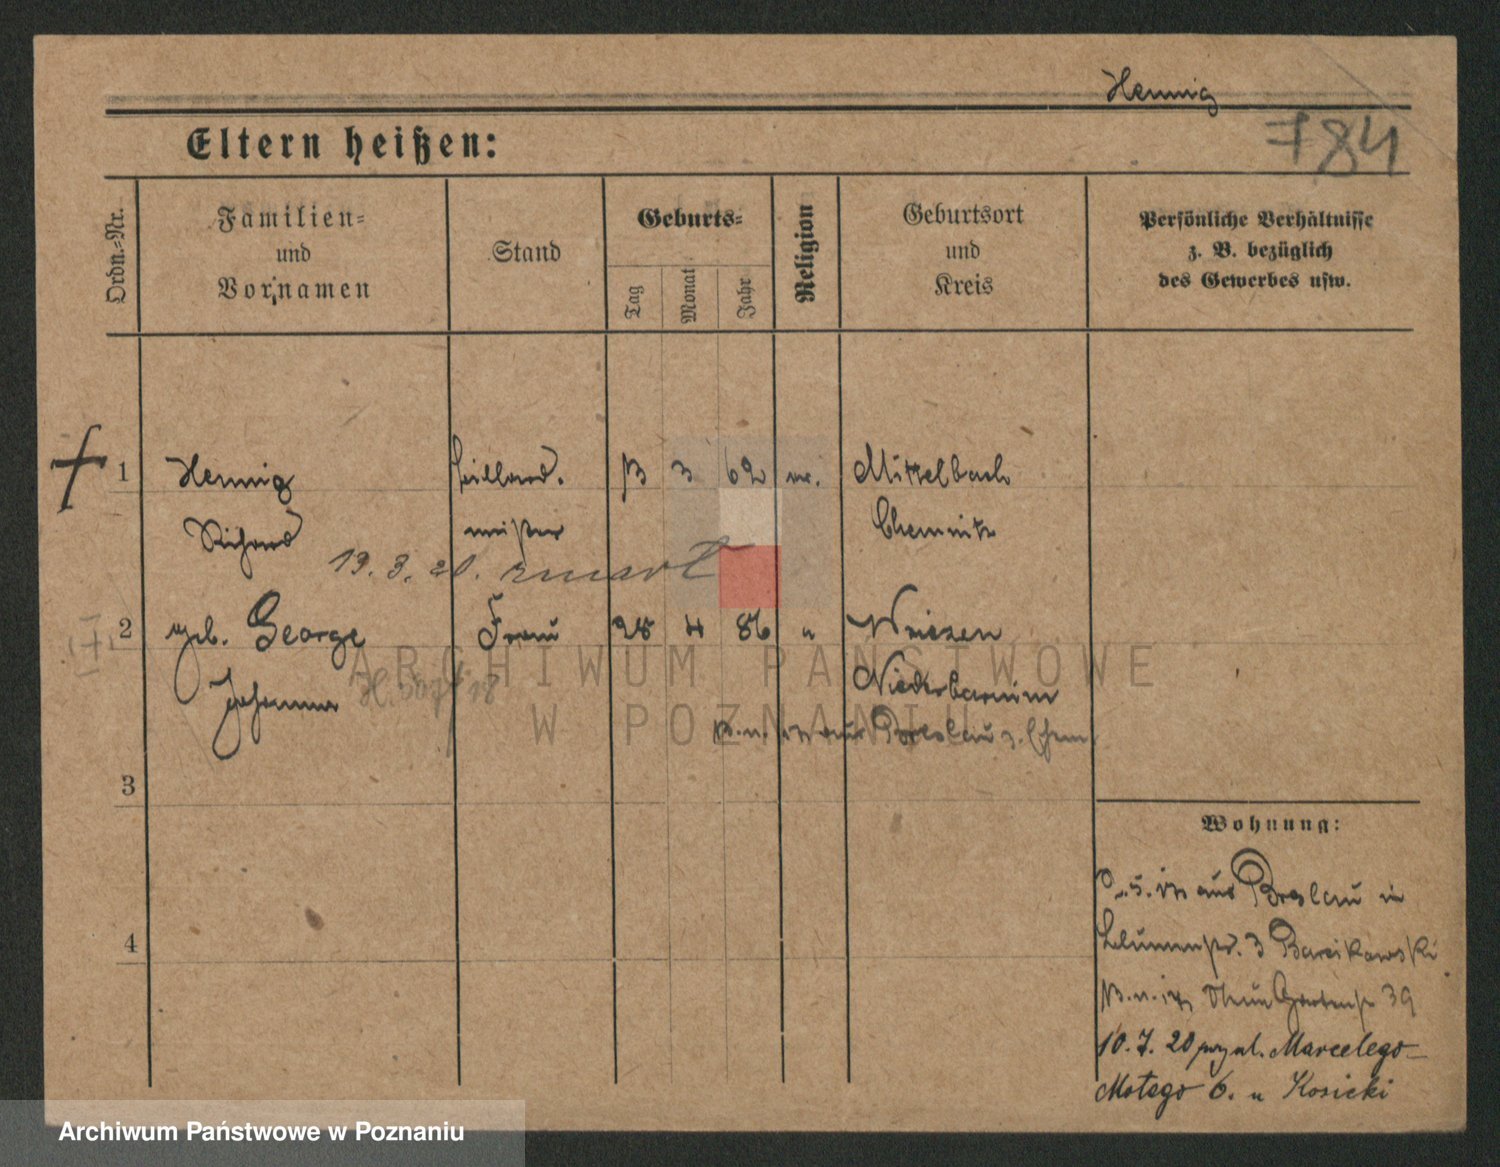 Hennig
784
Eltern heißen:
Ordn.-Nr.
Familien-
und
Vornamen
Stand
Geburts-
Tag
Monat
Jahr
Religion
Geburtsort
und
Kreis
Persönliche Verhältnisse
z. B. bezüglich
des Gewerbes usw.
1
Hennig
3 62
Mittelbach
Richard
meister
Chemnitz
19. 3. 20. zmarł
2
geb. George
Frau
25 4 86
"
Wriezen
Johanna
Niederbarnim
aus Breslau
3
4
Wohnung:
aus Breslau in
3 Barcikowski
39
10. 7. 20 Marcelego
Motego 6. u Kosicki
ARCHIWUM PAŃSTWOWE
W POZNANIU
Archiwum Państwowe w Poznaniu